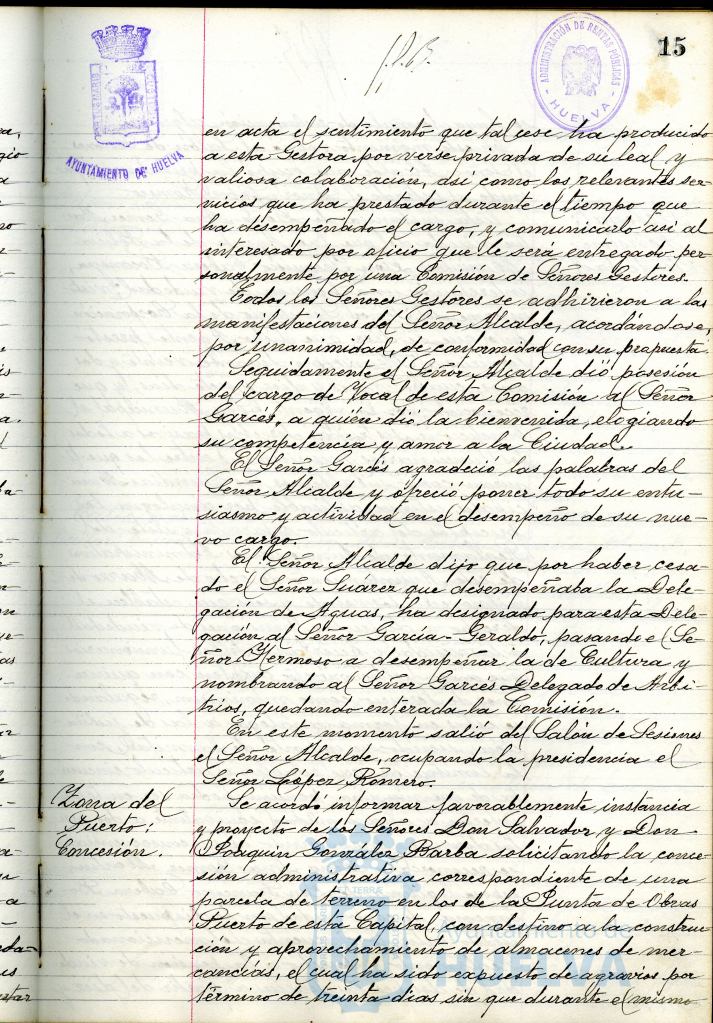 15
AYUNTAMIENTO DE HUELVA
ADMINISTRACIÓN DE RENTAS PÚBLICAS
HUELVA
en acta el sentimiento que tal cese ha producido
a esta Gestora por verse privada de su leal y
valiosa colaboración, así como los relevantes ser-
vicios que ha prestado durante el tiempo que
ha desempeñado el cargo, y comunicarlo así al
interesado por oficio que le será entregado per-
sonalmente por una Comisión de Señores Gestores.
Todos los Señores Gestores se adhirieron a las
manifestaciones del Señor Alcalde, acordándose,
por unanimidad, de conformidad con su propuesta.
Seguidamente el Señor Alcalde dió posesión
del cargo de Vocal de esta Comisión al Señor
Garcés, a quién dió la bienvenida, elogiando
su competencia y amor a la Ciudad.
El Señor Garcés agradeció las palabras del
Señor Alcalde y ofreció poner todo su entu-
siasmo y actividad en el desempeño de su nue-
vo cargo.
El Señor Alcalde dijo que por haber cesa-
do el Señor Suárez que desempeñaba la Dele-
gación de Aguas, ha designado para esta Dele-
gación al Señor García-Geraldo, pasando el Se-
ñor Hermoso a desempeñar la de Cultura y
nombrando al Señor Garcés Delegado de Arbi-
trios, quedando enterada la Comisión.
En este momento salió del Salón de Sesiones
el Señor Alcalde, ocupando la presidencia el
Señor López Romero.
Zona del
Puerto:
Concesión.
Se acordó informar favorablemente instancia
y proyecto de los Señores Don Salvador y Don
Joaquin González Barba solicitando la conce-
sión administrativa correspondiente de una
parcela de terreno en los de la Junta de Obras
Puerto de esta Capital, con destino a la construc-
ción y aprovechamiento de almacenes de mer-
cancías, el cual ha sido expuesto de agravios por
término de treinta dias sin que durante el mismo
Ayuntamiento de
HUELVA